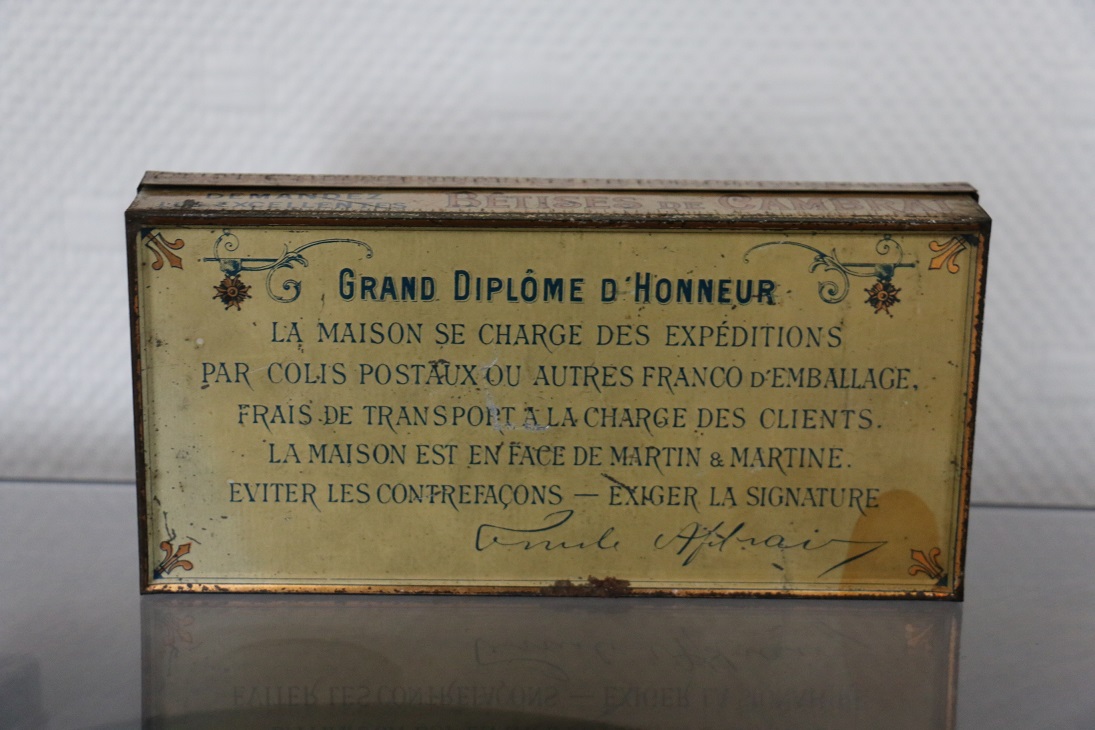 DEMANDEZ
LES EXCELLENTES
BÊTISES DE CAMBRAI
GRAND DIPLÔME D'HONNEUR
LA MAISON SE CHARGE DES EXPÉDITIONS
PAR COLIS POSTAUX OU AUTRES FRANCO D'EMBALLAGE,
FRAIS DE TRANSPORT A LA CHARGE DES CLIENTS.
LA MAISON EST EN FACE DE MARTIN & MARTINE.
EVITER LES CONTREFAÇONS — EXIGER LA SIGNATURE
Afchain